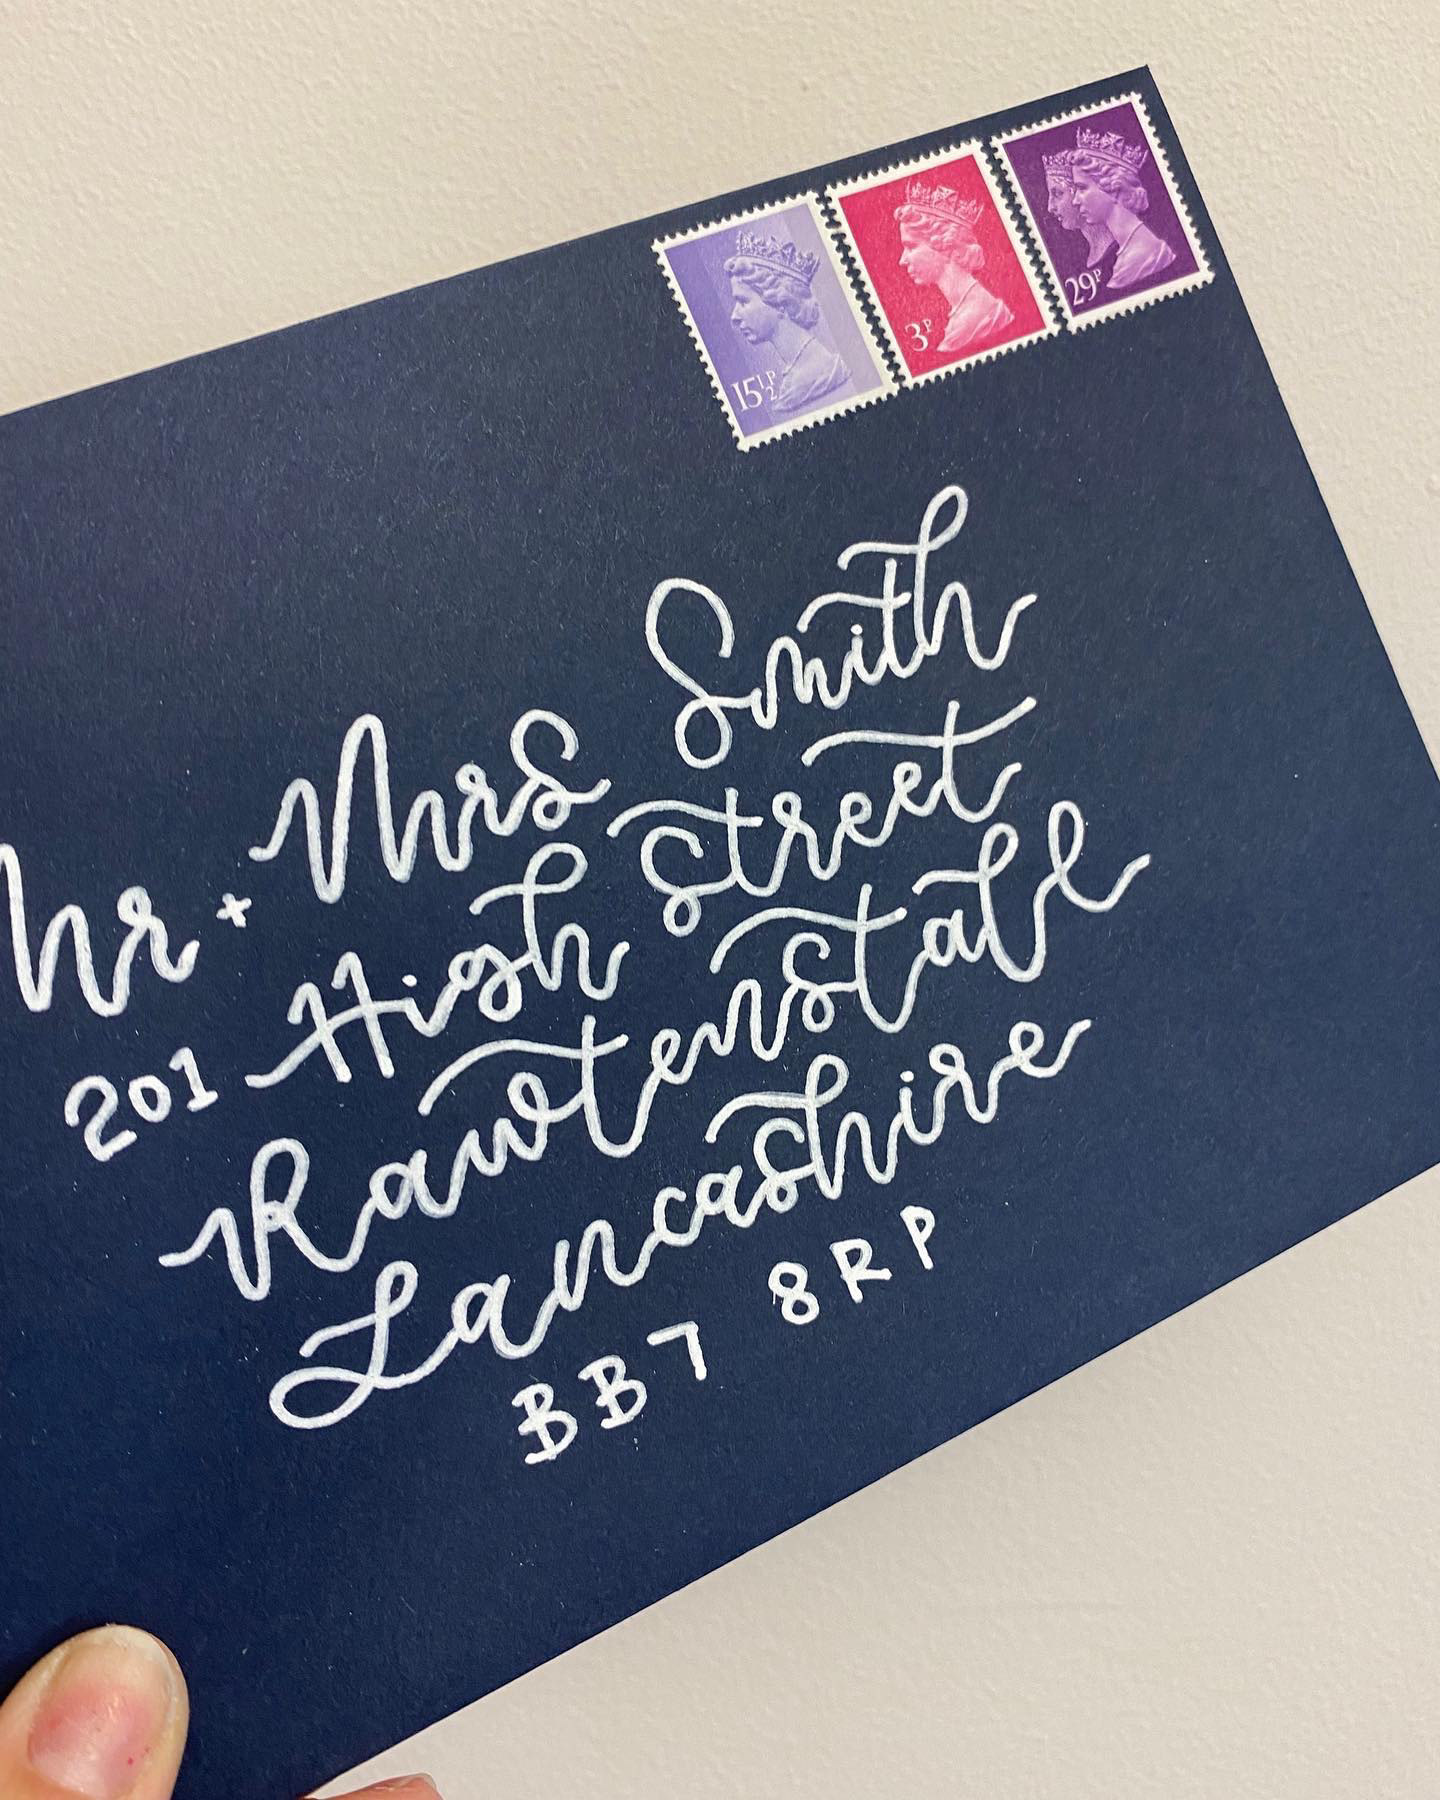 15½P
3P
29P
Mr + Mrs Smith
201 High Street
Rawtenstall
Lancashire
BB7 8RP